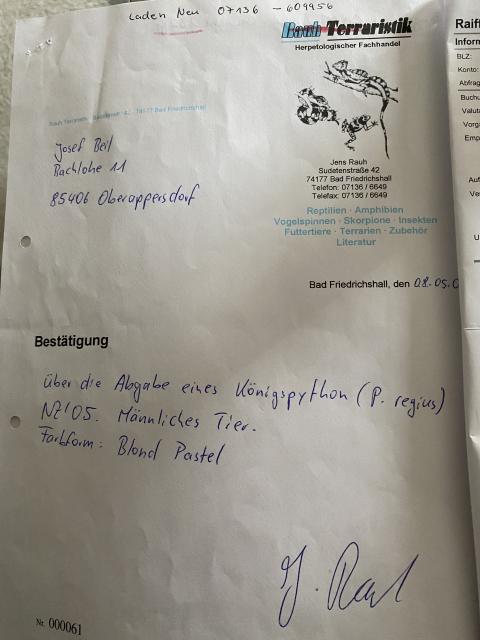 Laden Neu 07136 - 609956
Rauh Terraristik
Herpetologischer Fachhandel
Rauh Terraristik · Sudetenstr. 42 · 74177 Bad Friedrichshall
Josef Beil
Bachlohe 11
85406 Oberappersdorf
Jens Rauh
Sudetenstraße 42
74177 Bad Friedrichshall
Telefon: 07136 / 6649
Telefax: 07136 / 6649
Reptilien · Amphibien
Vogelspinnen · Skorpione · Insekten
Futtertiere · Terrarien · Zubehör
Literatur
Bad Friedrichshall, den 08.05.0
Bestätigung
über die Abgabe eines Königspython (P. regius)
NZ'05. Männliches Tier.
Farbform: Blond Pastel
J. Rauh
Nr. 000061
Raiff
Inform
BLZ:
Konto:
Abfrag
Buchu
Valuta
Vorga
Emp
Auf
Ve
U